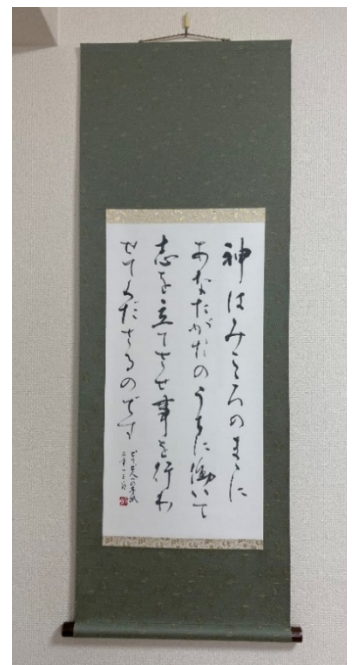 神はみこころのまゝに
あなたがたのうちに働いて
志を立てさせ事を行わ
せてくださるのです
ピリピ人への手紙
二章十三節